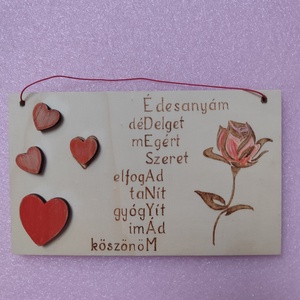 Édesanyám
déDelget
mEgért
Szeret
elfogAd
taNít
gyógYít
imÁd
köszönöM